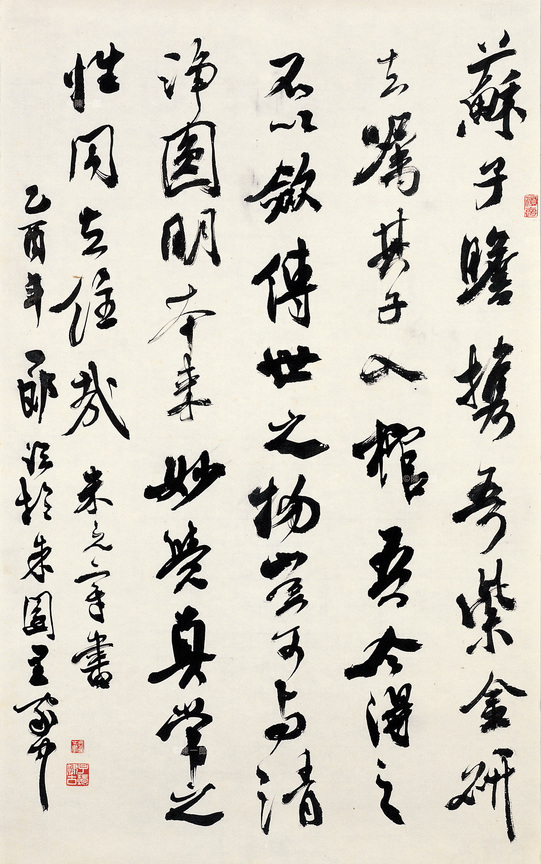 蘇子瞻携吾紫金研
去嘱其子入棺吾今得之
不以斂傳世之物豈可与清
淨圓明本来妙覺真常之
性同去住哉 米元章書
乙酉年 一郎於朱園主家中